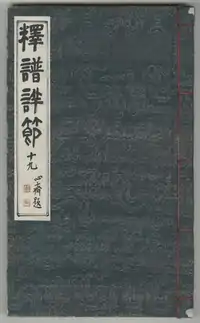 釋譜詳節
十九
心齋題